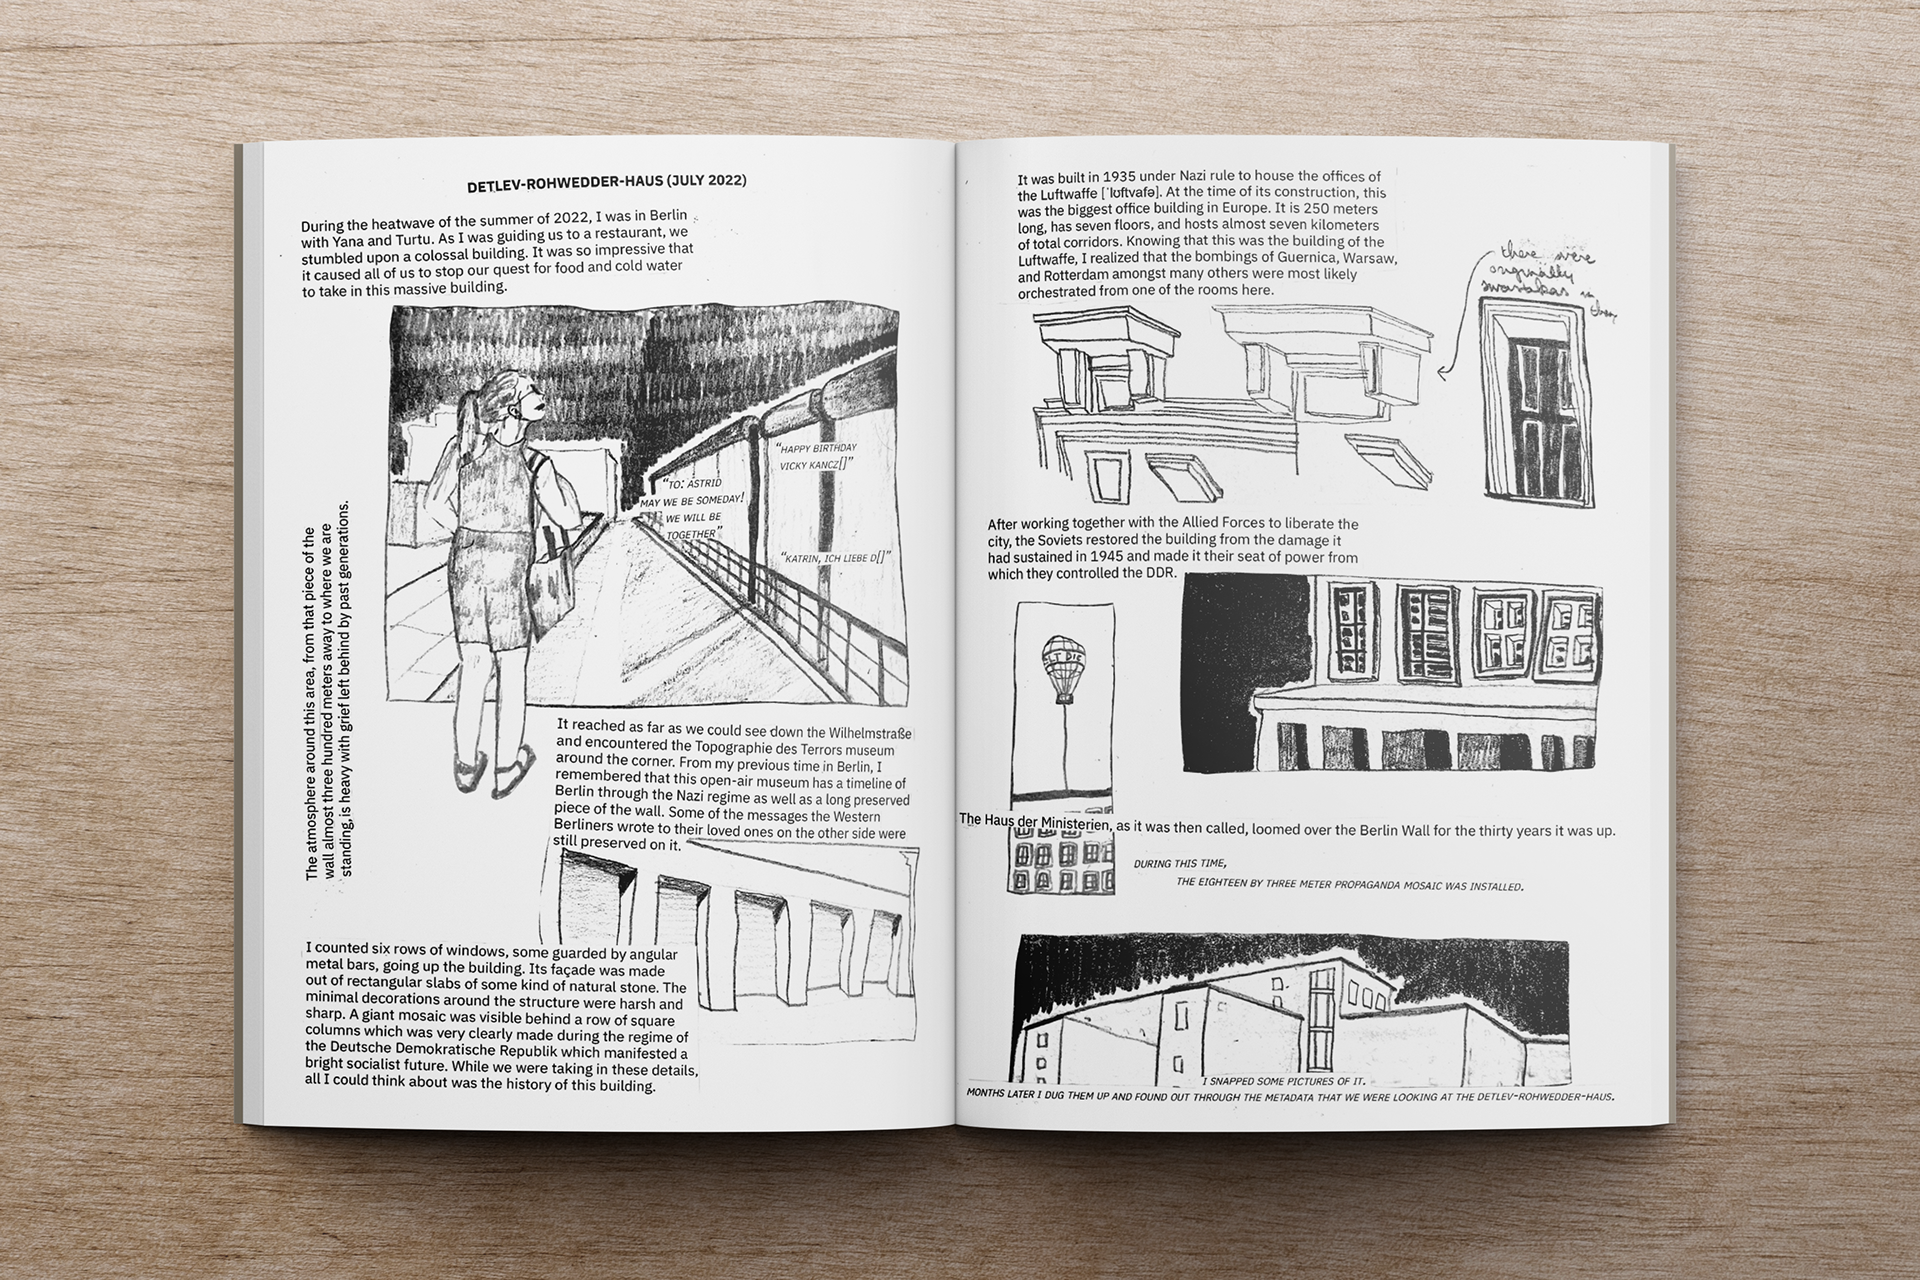 DETLEV-ROHWEDDER-HAUS (JULY 2022)
During the heatwave of the summer of 2022, I was in Berlin
with Yana and Turtu. As I was guiding us to a restaurant, we
stumbled upon a colossal building. It was so impressive that
it caused all of us to stop our quest for food and cold water
to take in this massive building.
“HAPPY BIRTHDAY
VICKY KANCZ[]”
“TO: ASTRID
MAY WE BE SOMEDAY!
WE WILL BE
TOGETHER”
“KATRIN, ICH LIEBE D[]”
The atmosphere around this area, from that piece of the
wall almost three hundred meters away to where we are
standing, is heavy with grief left behind by past generations.
It reached as far as we could see down the Wilhelmstraße
and encountered the Topographie des Terrors museum
around the corner. From my previous time in Berlin, I
remembered that this open-air museum has a timeline of
Berlin through the Nazi regime as well as a long preserved
piece of the wall. Some of the messages the Western
Berliners wrote to their loved ones on the other side were
still preserved on it.
I counted six rows of windows, some guarded by angular
metal bars, going up the building. Its façade was made
out of rectangular slabs of some kind of natural stone. The
minimal decorations around the structure were harsh and
sharp. A giant mosaic was visible behind a row of square
columns which was very clearly made during the regime of
the Deutsche Demokratische Republik which manifested a
bright socialist future. While we were taking in these details,
all I could think about was the history of this building.
It was built in 1935 under Nazi rule to house the offices of
the Luftwaffe [ˈlʊftvafə]. At the time of its construction, this
was the biggest office building in Europe. It is 250 meters
long, has seven floors, and hosts almost seven kilometers
of total corridors. Knowing that this was the building of the
Luftwaffe, I realized that the bombings of Guernica, Warsaw,
and Rotterdam amongst many others were most likely
orchestrated from one of the rooms here.
there were
originally
swastakas in
them
After working together with the Allied Forces to liberate the
city, the Soviets restored the building from the damage it
had sustained in 1945 and made it their seat of power from
which they controlled the DDR.
ELT DIE
The Haus der Ministerien, as it was then called, loomed over the Berlin Wall for the thirty years it was up.
DURING THIS TIME,
THE EIGHTEEN BY THREE METER PROPAGANDA MOSAIC WAS INSTALLED.
I SNAPPED SOME PICTURES OF IT.
MONTHS LATER I DUG THEM UP AND FOUND OUT THROUGH THE METADATA THAT WE WERE LOOKING AT THE DETLEV-ROHWEDDER-HAUS.